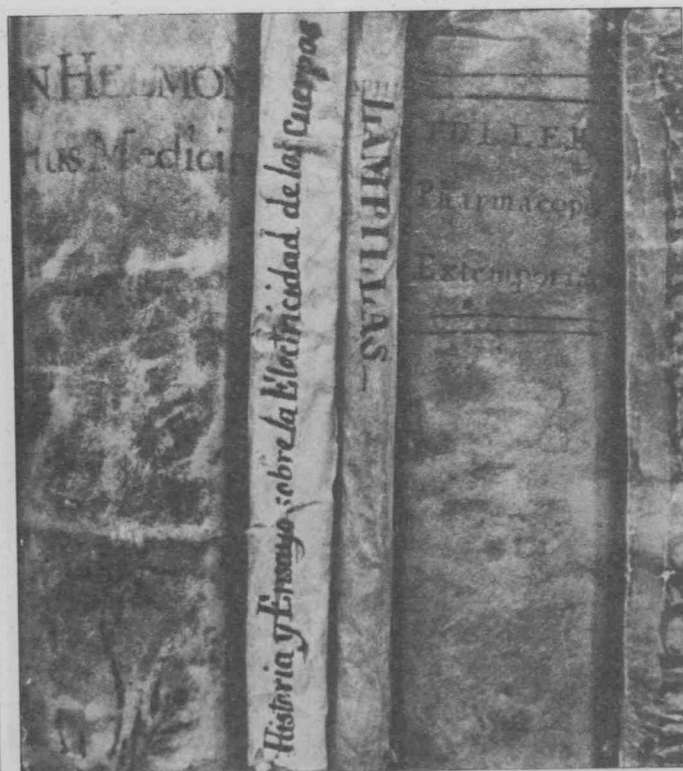 N HELMON
tus Medici
Historia y Ensayo sobre la Electricidad de los Cuerpos
LAMPILLAS
FULLER
Pharmacop
Extempora